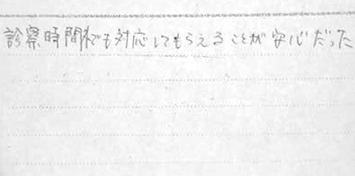 診察時間外でも対応してもらえることが安心だった